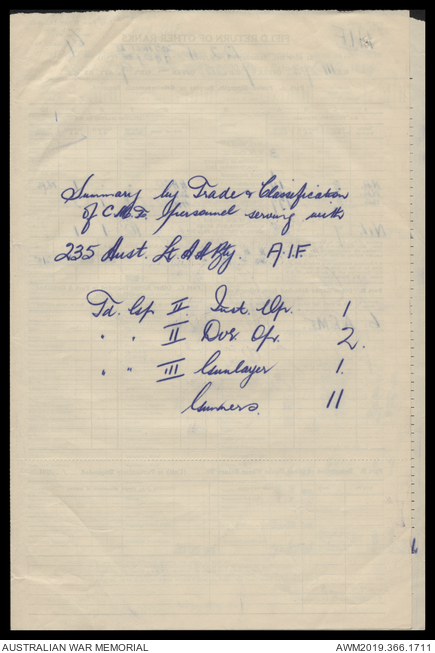 Summary by Trade & Classification
of C.M.F. personnel serving with
235 Aust. Lt. A A Bty A.I.F.
Td. Gp. II. Inst. Opr. 1
" " II Dvr. Opr. 2.
" " III Gunlayer 1.
Gunners. 11
AUSTRALIAN WAR MEMORIAL
AWM2019.366.1711